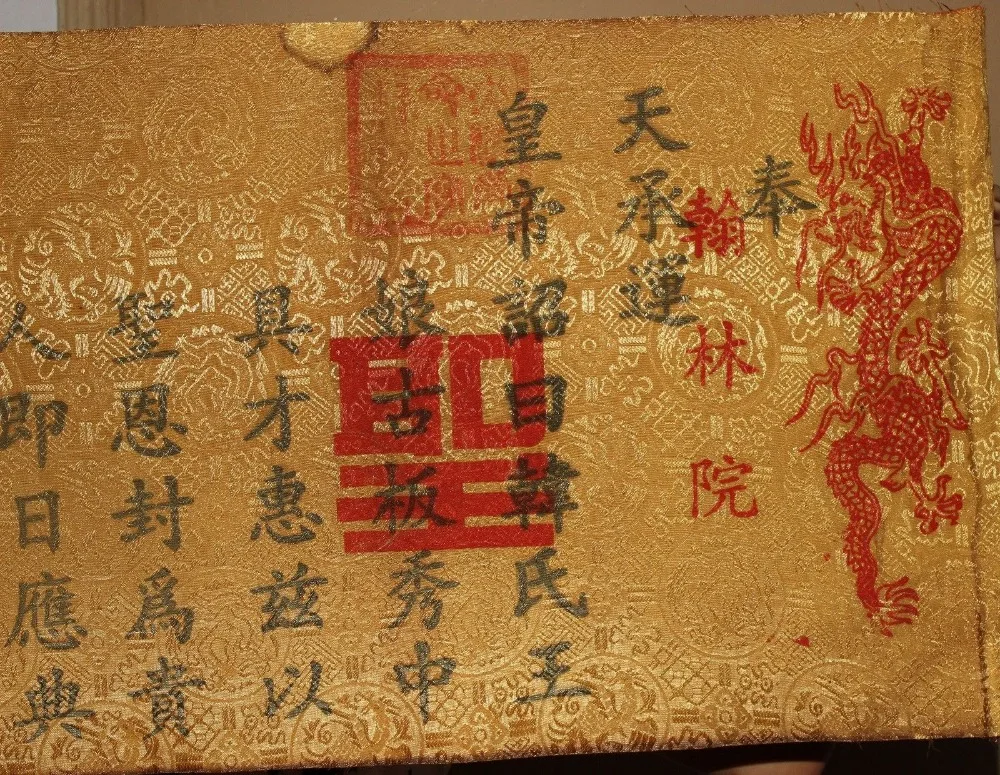 奉
翰林院
天承運
皇帝詔曰韓氏王
娘古板秀中
具才惠兹以
聖恩封爲貴
人即日應典
聖